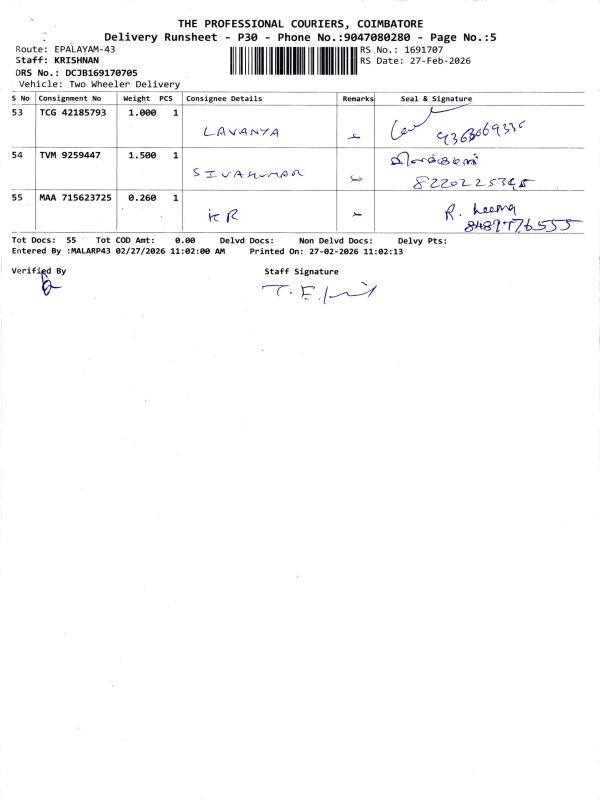 THE PROFESSIONAL COURIERS, COIMBATORE
Delivery Runsheet - P30 - Phone No.:9047080280 - Page No.:5
Route: EPALAYAM-43
RS No.: 1691707
Staff: KRISHNAN
RS Date: 27-Feb-2026
DRS No.: DCJB169170705
Vehicle: Two Wheeler Delivery
S No Consignment No Weight PCS Consignee Details Remarks Seal & Signature
53 TCG 42185793 1.000 1
LAVANYA
54 TVM 9259447 1.500 1
SIVAKUMAR
8220225395
55 MAA 715623725 0.260 1
KR R. Leema
8489776555
Tot Docs: 55 Tot COD Amt: 0.00 Delvd Docs: Non Delvd Docs: Delvy Pts:
Entered By :MALARP43 02/27/2026 11:02:00 AM Printed On: 27-02-2026 11:02:13
Verified By Staff Signature